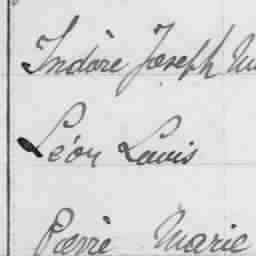 Isidore Joseph
Léon Louis
Pierre Marie